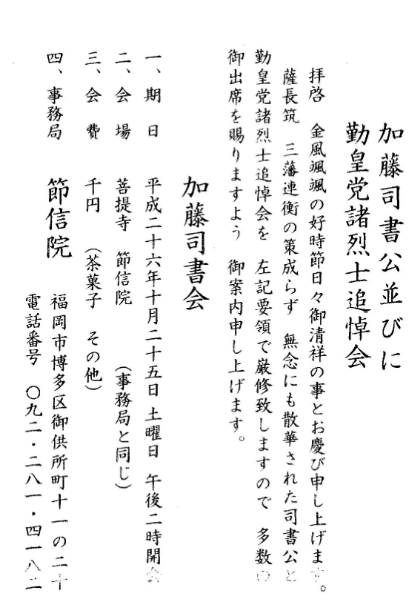 加藤司書公並びに
勤皇党諸烈士追悼会
拝啓 金風颯颯の好時節日々御清祥の事とお慶び申し上げます。
薩長筑 三藩連衡の策成らず 無念にも散華された司書公と
勤皇党諸烈士追悼会を 左記要領で厳修致しますので 多数の
御出席を賜りますよう 御案内申し上げます。
加藤司書会
一、期日 平成二十六年十月二十五日 土曜日 午後二時開会
二、会場 菩提寺 節信院 (事務局と同じ)
三、会費 千円 (茶菓子 その他)
四、事務局 節信院 福岡市博多区御供所町十一の二十
電話番号 〇九二・二八一・四一八二